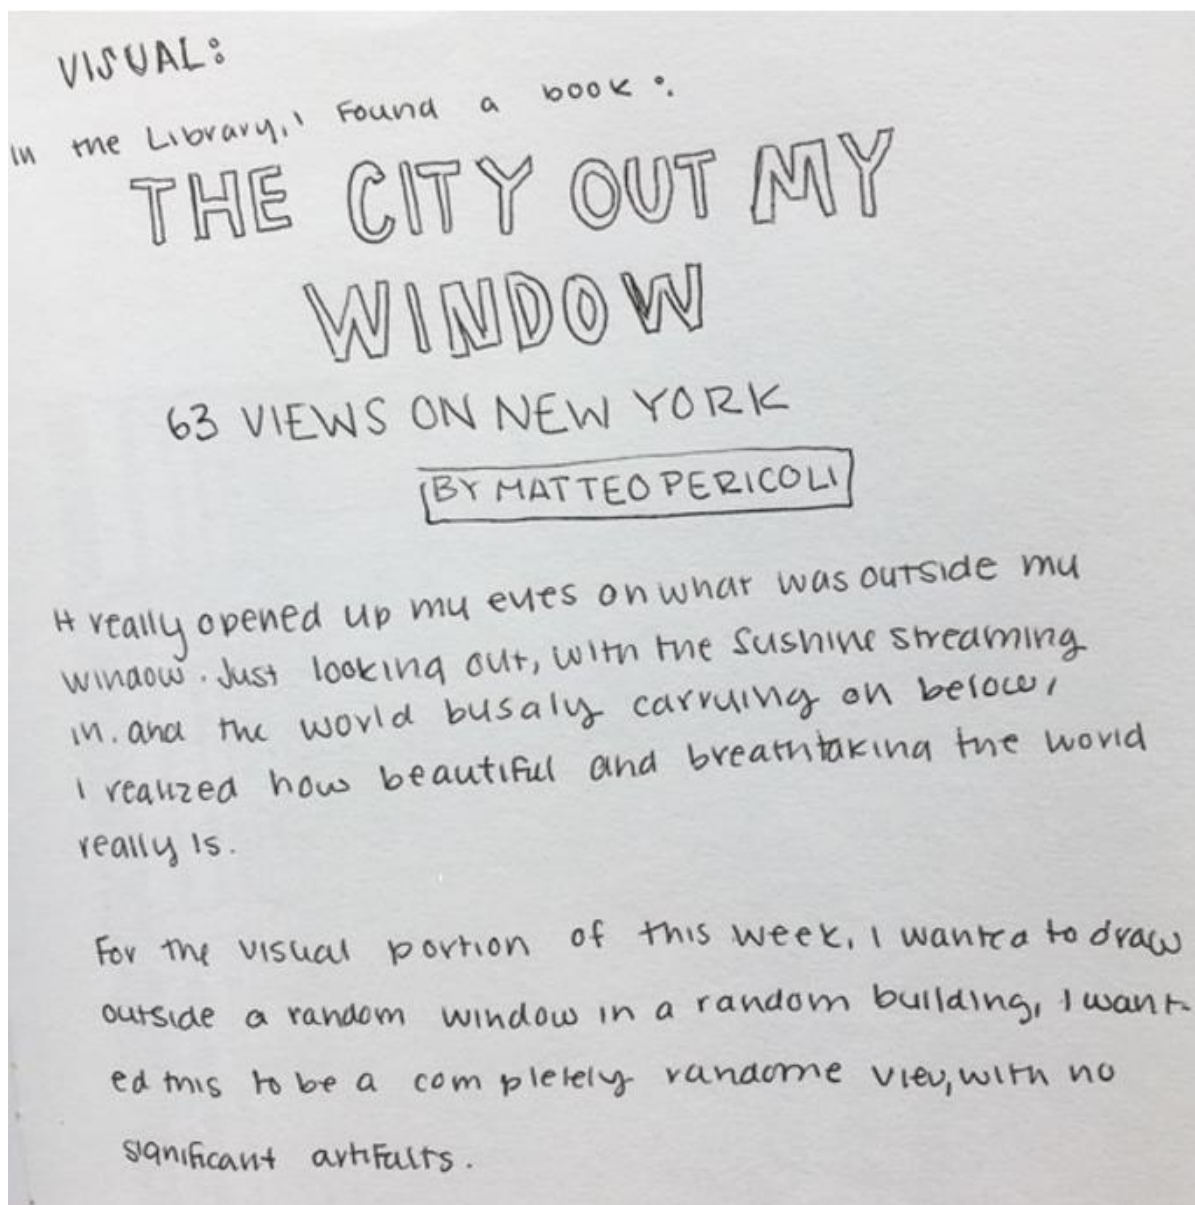 VISUAL:
in the Library, I Found a book:
THE CITY OUT MY
WINDOW
63 VIEWS ON NEW YORK
BY MATTEO PERICOLI
It really opened up my eyes on what was outside my
window. Just looking out, with the sushine streaming
in. and the world busaly carrying on below,
I realized how beautiful and breathtaking the world
really is.
For the visual portion of this week, I wanted to draw
outside a random window in a random building, I want-
ed this to be a completely randome view, with no
significant artifalts.